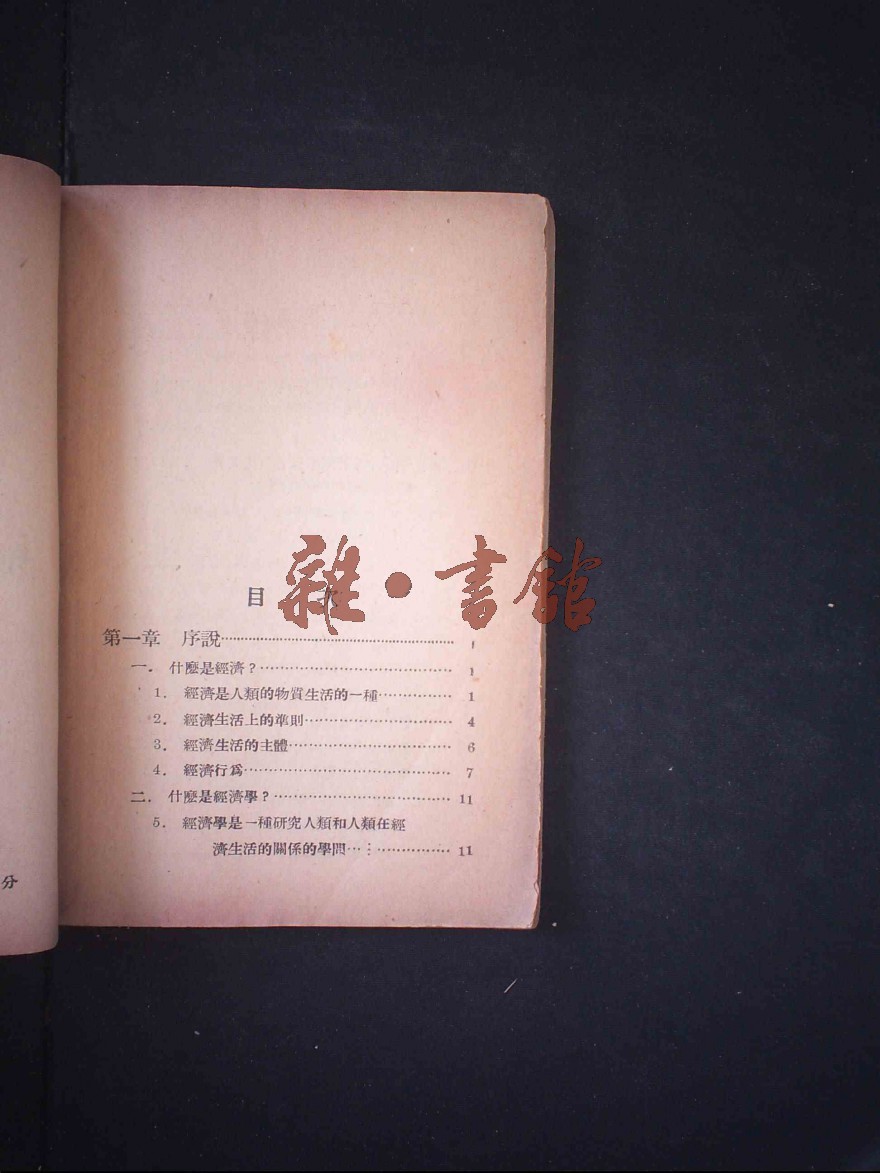 目 次
雜·書館
第一章 序說 1
一. 什麼是經濟? 1
1. 經濟是人類的物質生活的一種 1
2. 經濟生活上的準則 4
3. 經濟生活的主體 6
4. 經濟行爲 7
二. 什麼是經濟學? 11
5. 經濟學是一種研究人類和人類在經
濟生活的關係的學問 11
分